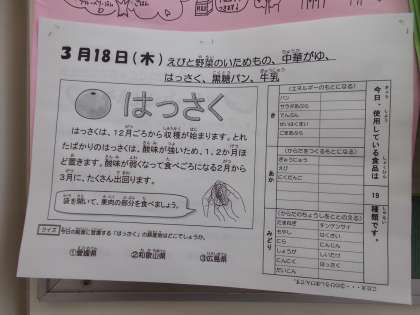 3月18日(木) えびと野菜のいためもの、中華がゆ、
はっさく、黒糖パン、牛乳
はっさく
はっさくは、12月ごろから収穫が始まります。とれ
たばかりのはっさくは、酸味が強いため、1、2か月ほ
ど置きます。酸味が弱くなって食べごろになる2月から
3月に、たくさん出回ります。
袋を開いて、果肉の部分を食べましょう。
クイズ 今日の給食に登場する「はっさく」の原産地はどこでしょうか。
①愛媛県 ②和歌山県 ③広島県
今日、使用している食品は 19 種類です。
き
(エネルギーのもとになる)
パン
サラダあぶら
でんぷん
ごまあぶら
あか
(からだをつくるもとになる)
ぎゅうにゅう
えび
みどり
(からだのちょうしをととのえる)
たまねぎ チンゲンサイ
もやし はくさい
にら にんじん
しょうが しいたけ
にんにく はっさく
だいこん